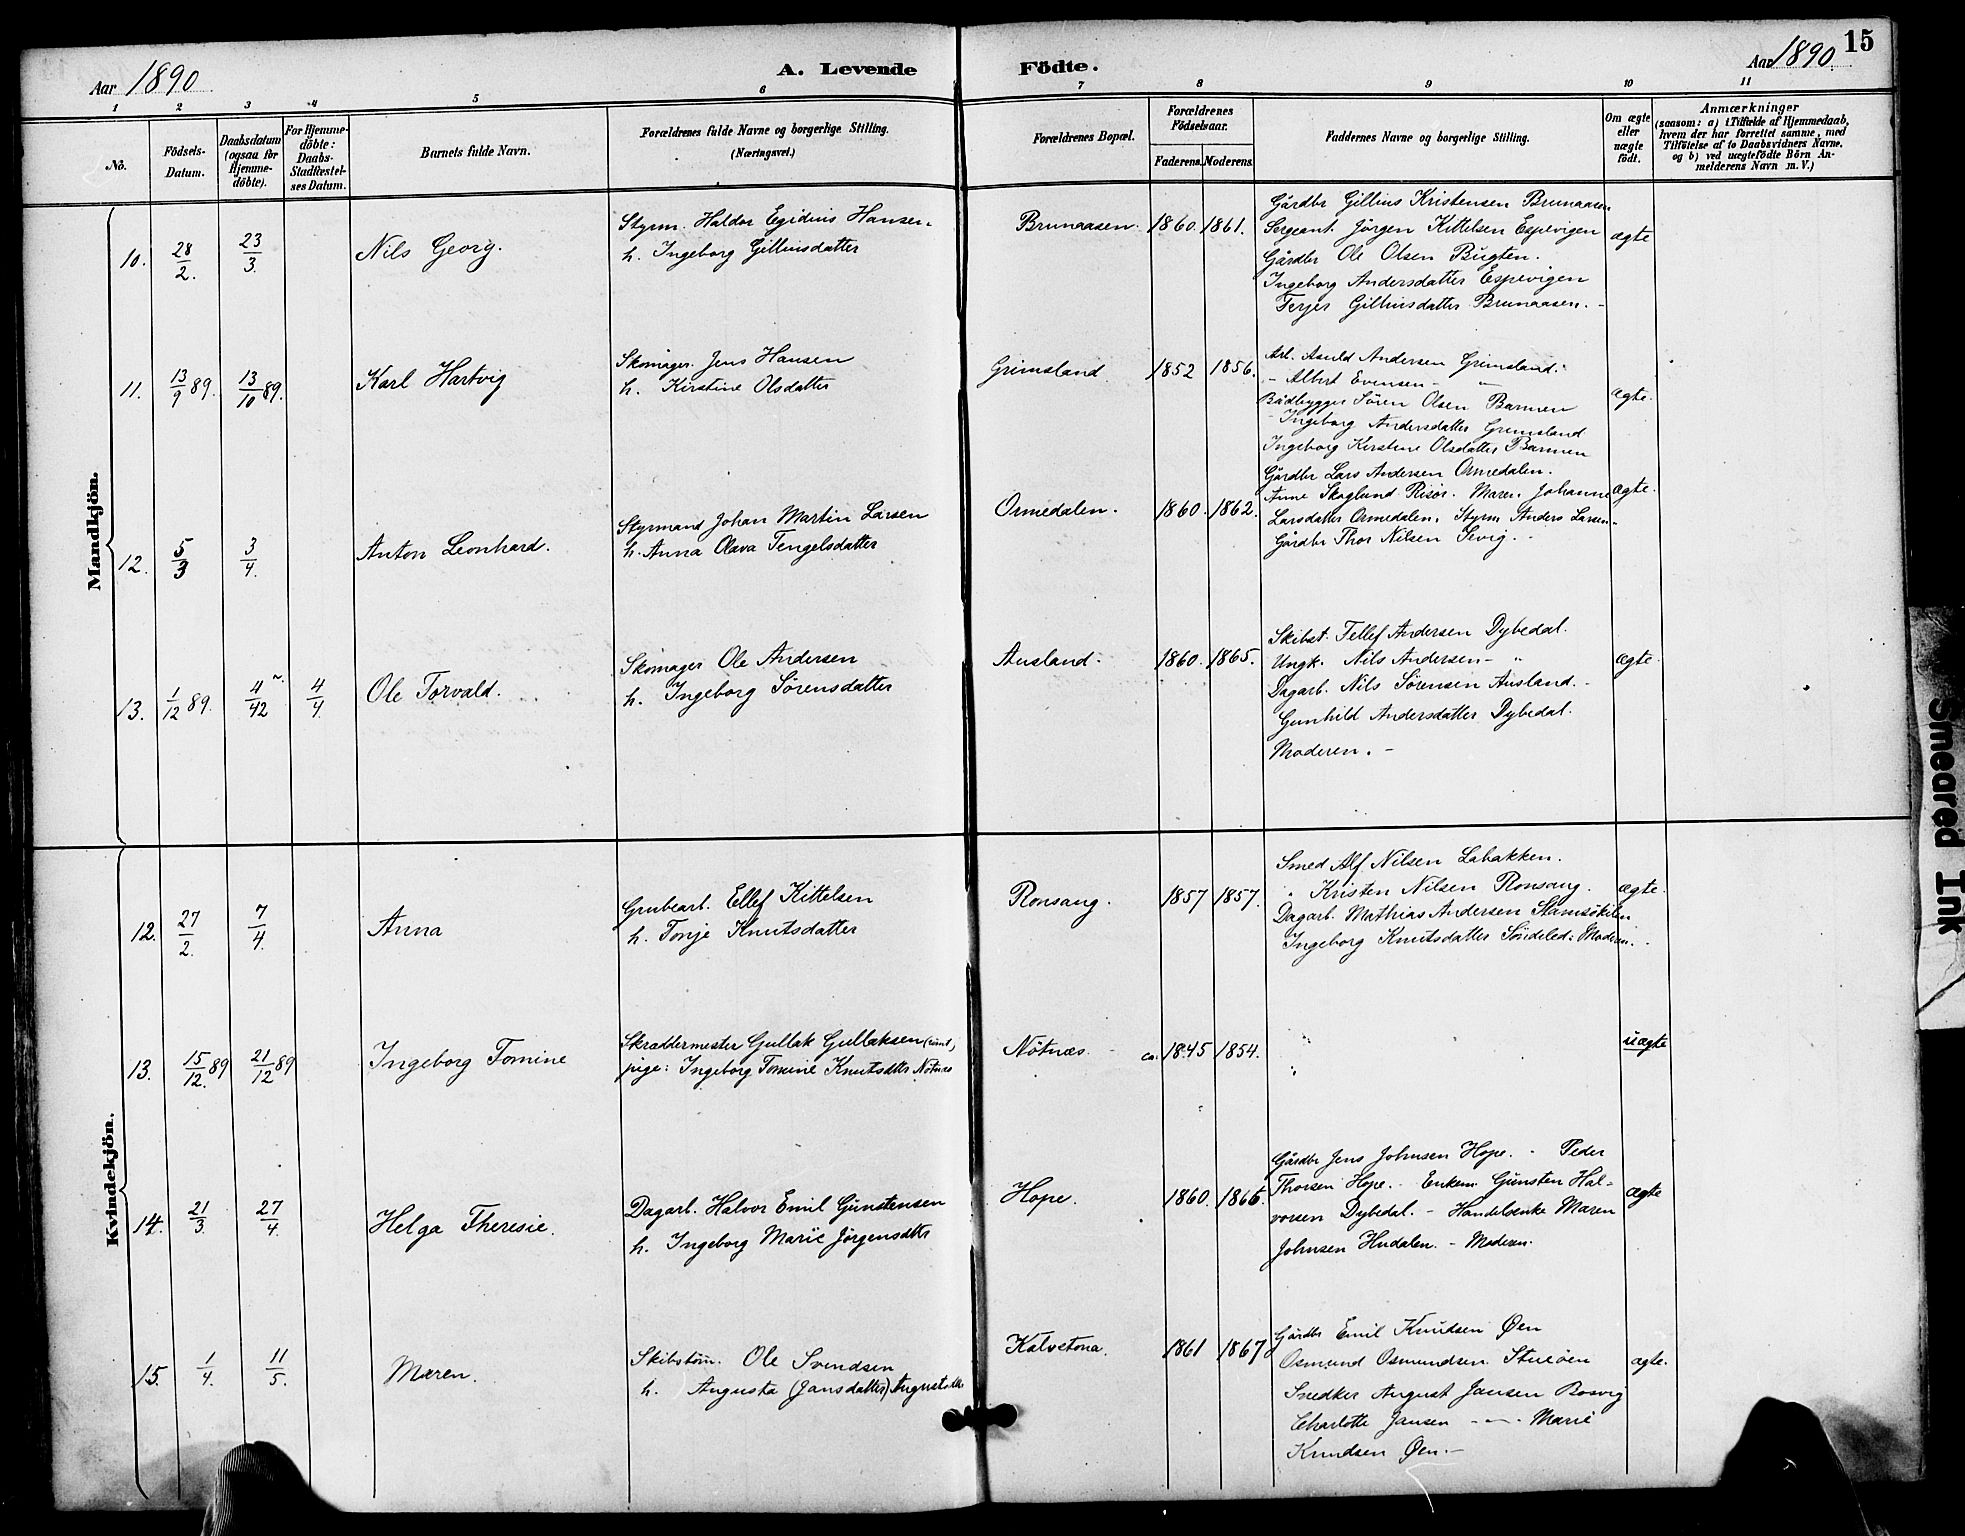 15
Aar 1890 A. Levende Födte. Aar 1890
1 2 3 4 5 6 7 8 9 10 11
No.
Födsels-
Datum.
Daabsdatum
(ogsaa for
Hjemme-
döbte).
For Hjemme-
döbte:
Daabs-
Stadfæstel-
ses Datum.
Barnets fulde Navn.
Forældrenes fulde Navne og borgerlige Stilling.
(Næringsvei.)
Forældrenes Bopæl.
Forældrenes
Födselsaar.
Faderens. Moderens.
Faddernes Navne og borgerlige Stilling.
Om ægte
eller
uægte
födt.
Anmærkninger
(saasom: a) i Tilfælde af Hjemmedaab,
hvem der har forrettet samme, med
Tilföielse af to Daabsvidners Navne.
og b) ved uægtefödte Börn An-
melderens Navn m. V.)
Mandkjön.
10. 28/2. 23/3. Nils Georg.
Styrm. Haldor Egidius Hansen.
h. Ingeborg Gilliusdatter
Brunaasen. 1860. 1861.
Gårdbr Gillius Kristensen Brunaasen
Sergeant. Jörgen Kittelsen Espevigen
Gårdbr Ole Olsen Bugten.
Ingeborg Andersdatter Espevigen
Terjer Gilliusdatter Brunaasen. -
ægte
11. 13/9 89. 13/10 89. Karl Hartvig
Skomager. Jens Hansen
h. Kirstine Olsdatter
Grimsland 1852 1856.
Arb. Asuld Andersen Grimsland.
- Albert Evensen - "
Bådbygger Sören Olsen Barmen
Ingeborg Andersdatter Grimsland
Ingeborg Kirstine Olsdatter Barmen
ægte.
12. 5/3 3/4. Anton Leonhard.
Styrmand Johan Martin Larsen
h. Anna Olava Tengelsdatter
Ormedalen. 1860. 1862.
Gårdbr Lars Andersen Ormedalen.
Anne Skoglund Risör. Maren Johanne
Larsdatter Ormedalen. Styrm Anders Larsen.
Gårdbr Thor Nilsen Sevig. -
ægte.
13. 1/12 89. 4/42 4/4 Ole Torvald.
Skomager Ole Andersen
h. Ingeborg Sörensdatter
Ausland. 1860. 1865.
Skibst. Tellef Andersen Dybedal.
Ungk. Nils Andersen - "
Dagarb. Nils Sörensen Ausland. -
Gunhild Andersdatter Dybedal.
Moderen. -
ægte.
Kvindekjön.
12. 27/2. 7/4. Anna
Grubearb. Ellef Kittelsen
h. Tonje Knutsdatter
Ronsang. 1857 1857.
Smed Alf Nilsen Labakken.
" Kristen Nilsen Ronsang.
Dagarb. Mathias Andersen Stamsökilen
Ingeborg Knutsdatter Söndeled: Moderen.
ægte.
13. 15/12. 89 21/12 89 Ingeborg Tomine
Skræddermester Gullak Gullaksen
pige: Ingeborg Tomine Knutsdtr Nötnæs
Nötnæs - ca. 1845 1854.
uægte
14. 21/3 27/4. Helga Theresie.
Dagarb. Halvor Emil Gunstensen
h. Ingeborg Marie Jörgensdtr
Hope. 1860. 1866.
Gårdbr Jens Johnsen Hope. - Peder
Thorsen Hope. - Enkem. Gunsten Hal-
vorsen Dybedal. - Handelsenke Maren
Johnsen Hudalen. - Moderen.
ægte
15. 1/4. 11/5. Maren.
Skibstöm. Ole Svendsen
h. Augusta (Jansdatter) Augustsdtr
Kalvstona. 1861 1867
Gårdbr Emil Knudsen Øen
Osmund Osmundsen Stueöen
Snedker August Jansen Bosvig
Charlotte Jansen - " - Marie
Knudsen Øen. -
ægte.
Smeared Ink